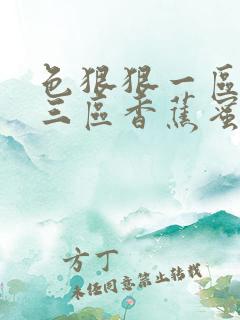 色狠狠一區
三區香蕉蜜
方丁
未经同意禁止转载